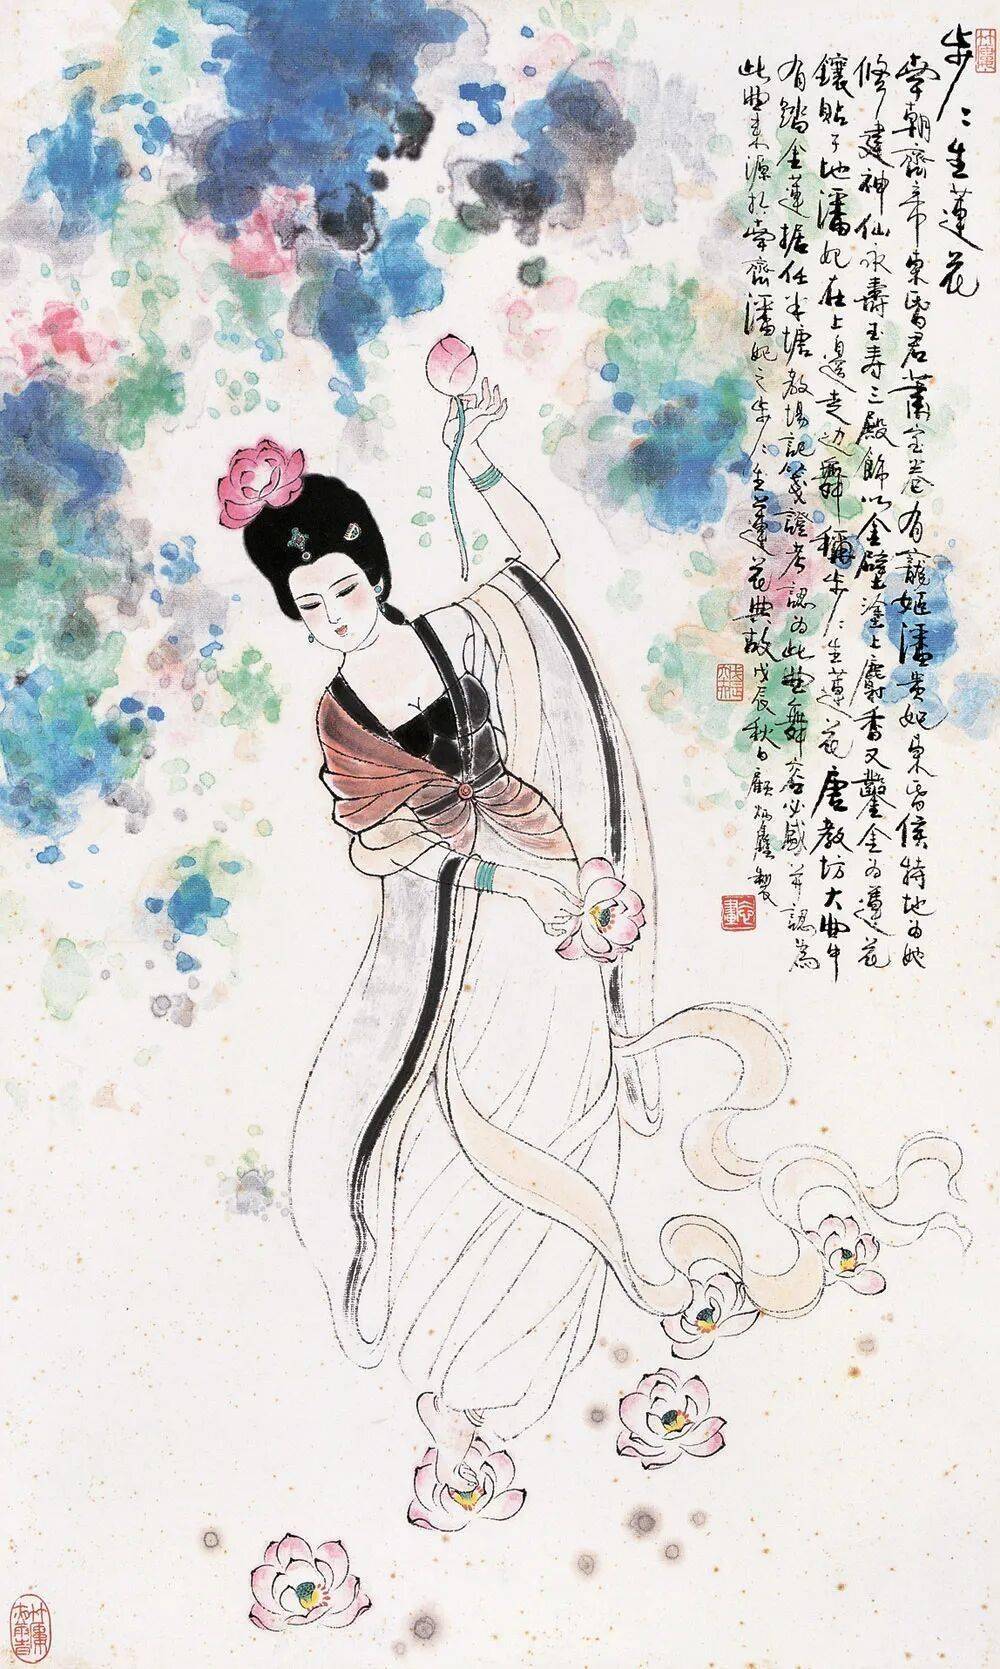 步〻生蓮花
南朝齊帝東昏君蕭宝卷有寵姬潘貴妃東昏侯特地为她
修建神仙永壽玉寿三殿飾以金壁塗上麝香又鑿金为蓮花
鑲貼于地潘妃在上邊走边舞稱步〻生蓮花唐教坊大曲中
有踏金蓮据任半塘教坊記箋證考認为此曲舞容必盛并認為
此曲来源於南齊潘妃之步〻生蓮花典故戊辰秋日顧炳鑫製